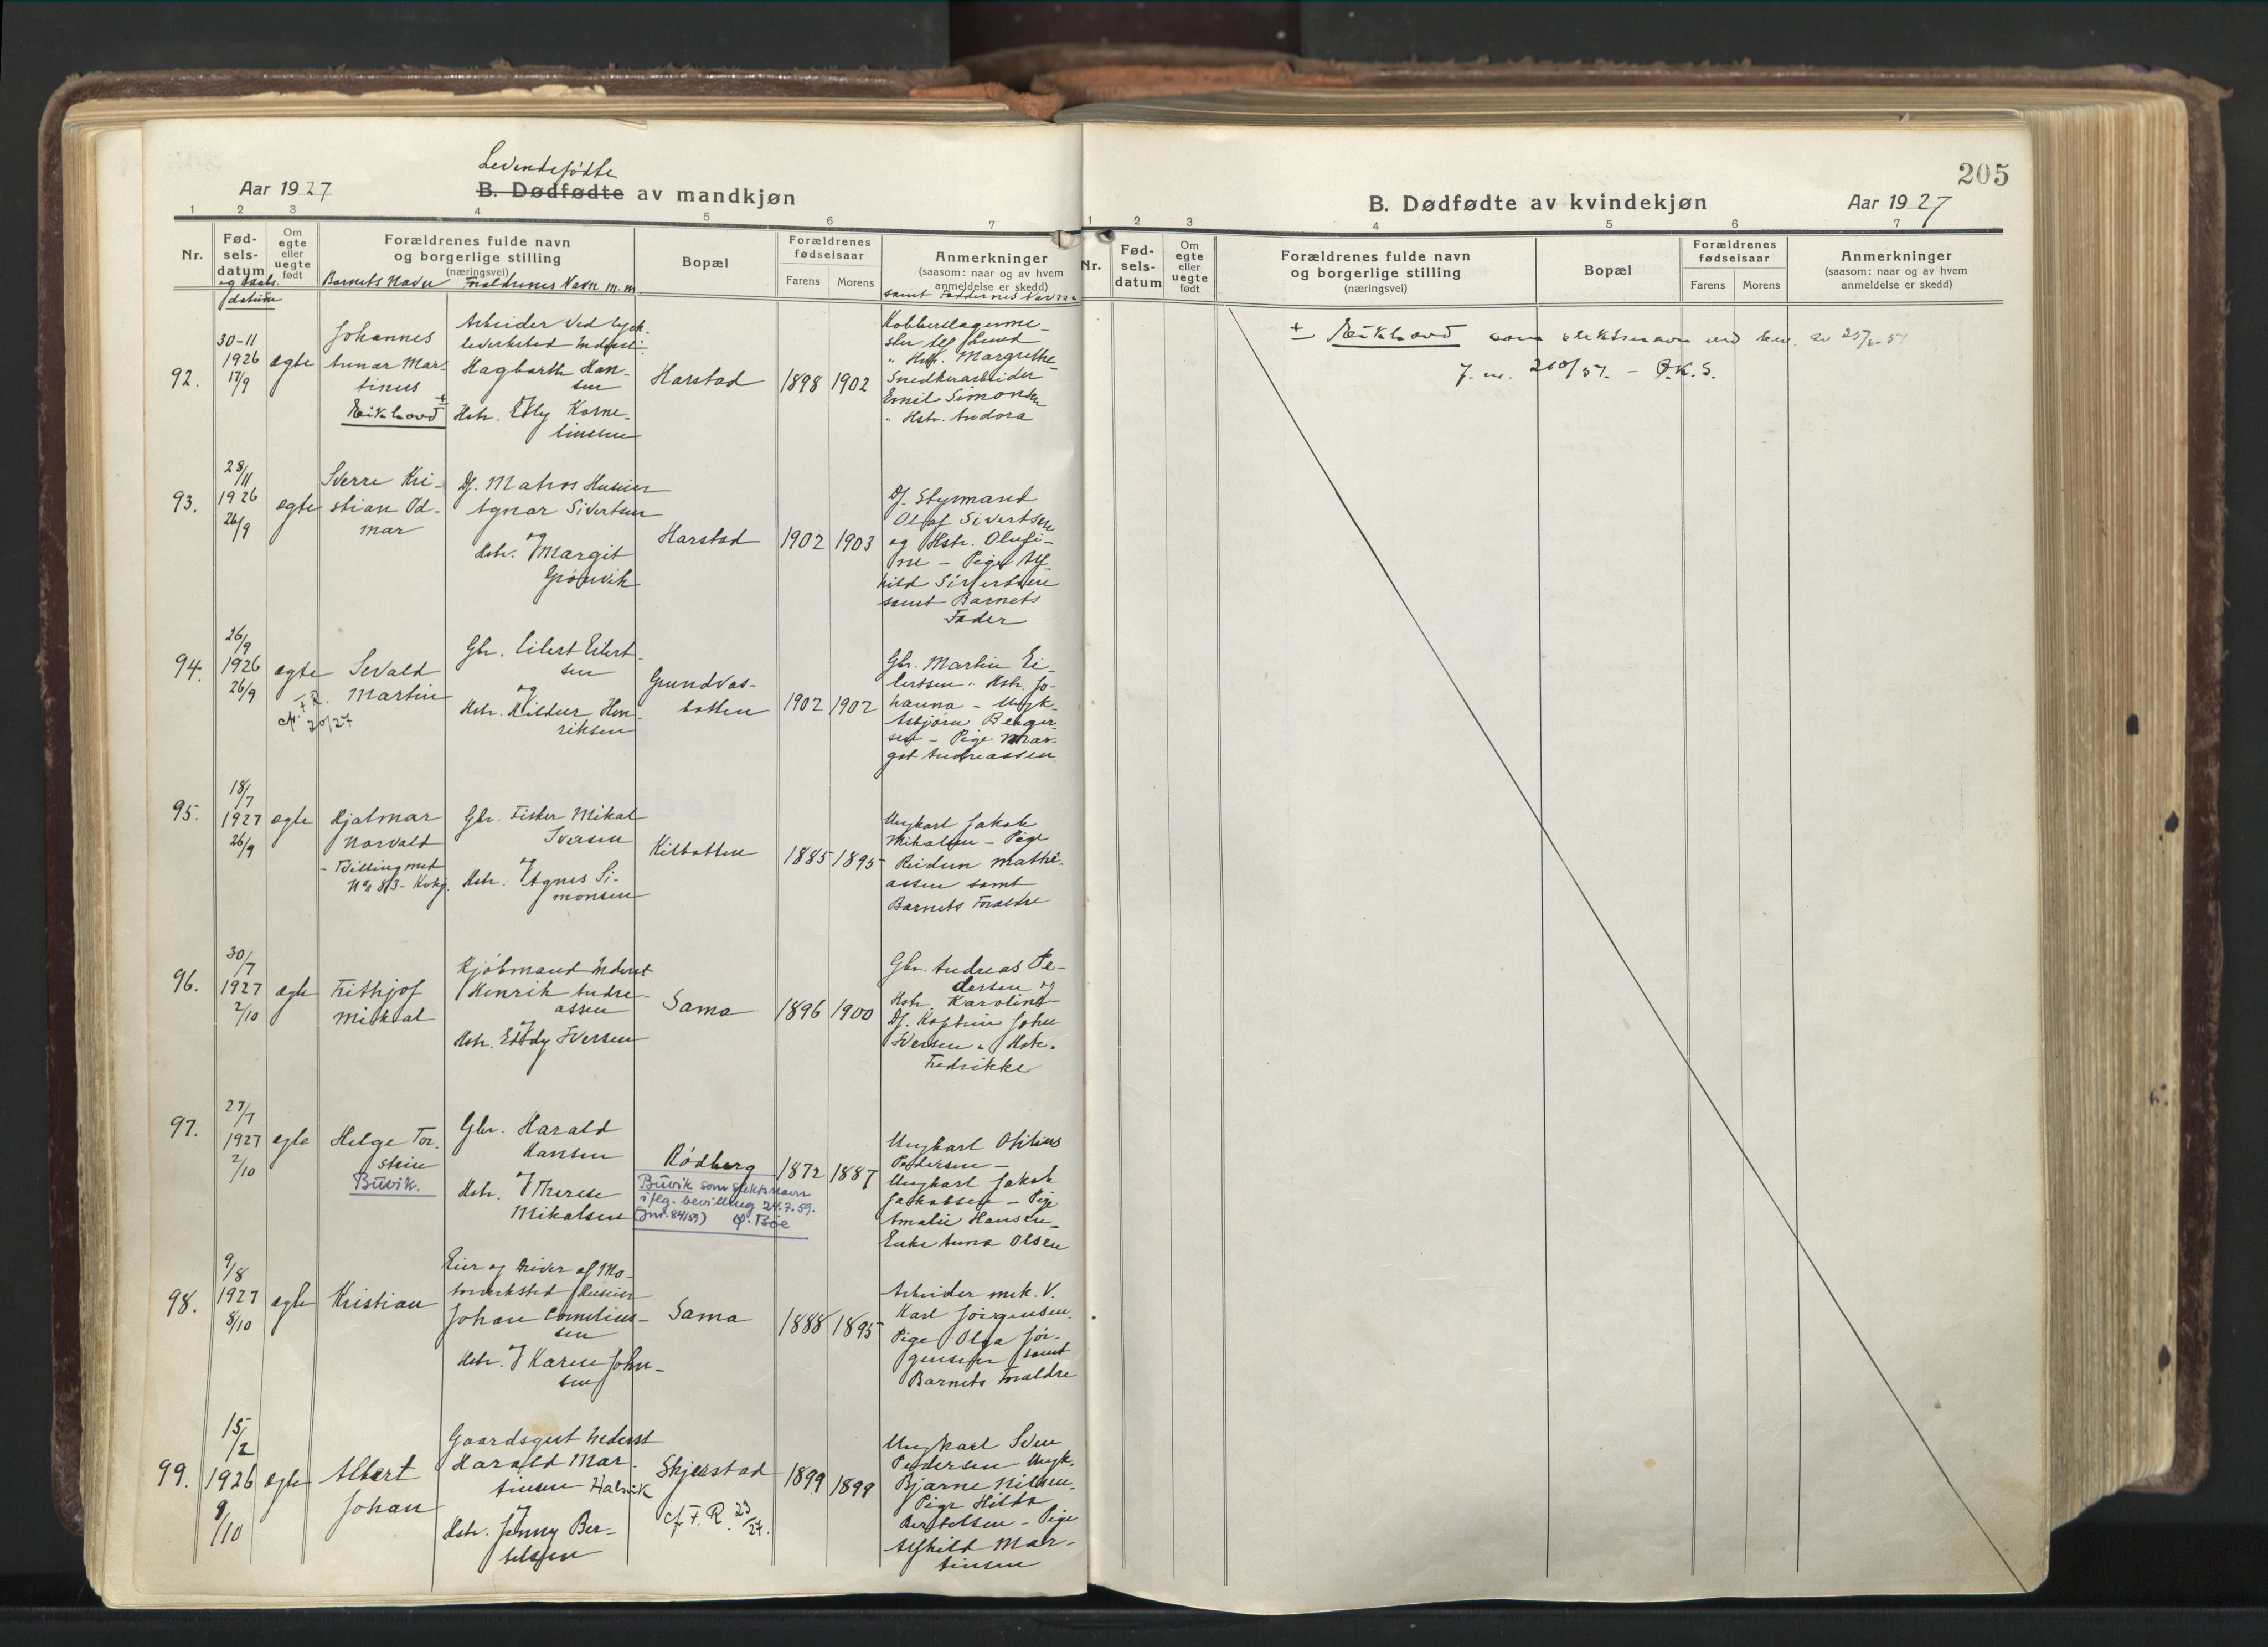 Levendefødte
Aar 1927
B. Dødfødte av mandkjøn
1 2 3 4 5 6 7
Nr.
Fød-
sels-
datum
og Daabs-
datum
Om
egte
eller
uegte
født
Forældrenes fulde navn
og borgerlige stilling
(næringsvei)
Barnets Navn Forældrenes Navn m.m.
Bopæl
Forældrenes
fødselsaar
Farens Morens
Anmerkninger
(saasom: naar og av hvem
anmeldelse er skedd)
samt Faddernes Navne
92.
30-11
1926
17/9
egte
Johannes
Gunar Mar-
tinus
Eikhovd +
Arbeider ved
Hagbarth Han-
sen
Hstr. Edly Korne-
liussen
Harstad
1898 1902
Lund
" Hstr. Margrethe
Snedkerarbeider
Emil Simonsen
" Hstr. Andora
93.
28/11
1926
26/9
egte
Sverre Kri-
stian Od-
mar
Df. Matros Huseier
Agnar Sivertsen
og
Hstr. Margit
Grønvik
Harstad
1902 1903
Df. Styrmand
Olaf Sivertsen
og Hstr. Olufi-
ne - Pige Alf-
hild Sivertsen
samt Barnets
Fader
94.
26/9
1926
26/9
egte
+ R.
cfr. 20/27
Sevald
Martin
Gbr. Eilert Eilert-
sen
og
Hstr. Hildur Hen-
riksen
Grundvas-
botten
1902 1902
Gbr. Martin Ei-
lertsen " Hstr. Jo-
hanna - Ungk.
Asbjørn Berger-
sen - Pige Mar-
got Andreassen
95.
18/7
1927
26/9
egte
Hjalmar
Norvald
- Tvilling med
No 83 - Kvkj.
Gbr. Fisker Mikal
Iversen
og
Hstr. Agnes Si-
monsen
Kilbotten
1885 1895
Ungkarl Jakob
Mikalsen - Pige
Reidun Mathi-
assen samt
Barnets Forældre
96.
30/7
1927
2/10
egte
Frithjof
Mikal
Kjøbmand Inderst
Henrik Andre-
assen
og
Hstr. Eddy Iversen
Sama
1896 1900
Gbr. Andreas Pe-
dersen og
Hstr. Karoline
Df. Kaptein Johan
Iversen " Hstr.
Fredrikke
97.
27/7
1927
2/10
egte
Helge Tor-
stein
Buvik.
Gbr. Harald
Hansen
og
Hstr. Therese
Mikalsen
Rødberg
Buvik som slektsnavn
iflg. bevilling 24.7.59.
(Jnr. 84/59) Ø. Bøe
1872 1887
Ungkarl Otilius
Pedersen -
Ungkarl Jakob
Jakobsen - Pige
Amalie Hansen -
Enke Anna Olsen
98.
9/8
1927
8/10
egte
Kristian
Eier og Driver af Mo-
torverksted Huseier
Johan Cornelius-
sen
og
Hstr. Karen John-
sen
Sama
1888 1895
Arbeider mek. V.
Karl Jørgensen.
Pige Olga Jør-
gensen samt
Barnets Forældre
99.
15/2
1926
9/10
egte
Albert
Johan
Gaardsgut Inderst
Harald Mar-
tinsen Halvik
og
Hstr. Jenny Ber-
telsen
Skjerstad
cfr. F. R. 23/27.
1899 1899
Ungkarl Sven
Pedersen Ungk.
Bjarne Nilsen.
Pige Hilda
Bertelsen - Pige
Alfhild Mar-
tinsen
205
B. Dødfødte av kvindekjøn
Aar 1927
1 2 3 4 5 6 7
Nr.
Fød-
sels-
datum
Om
egte
eller
uegte
født
Forældrenes fulde navn
og borgerlige stilling
(næringsvei)
Bopæl
Forældrenes
fødselsaar
Farens Morens
Anmerkninger
(saasom: naar og av hvem
anmeldelse er skedd)
+ Eikhovd som slektsnavn ved bev. av 25/6-51
J. nr. 210/51. - Ø.K.S.